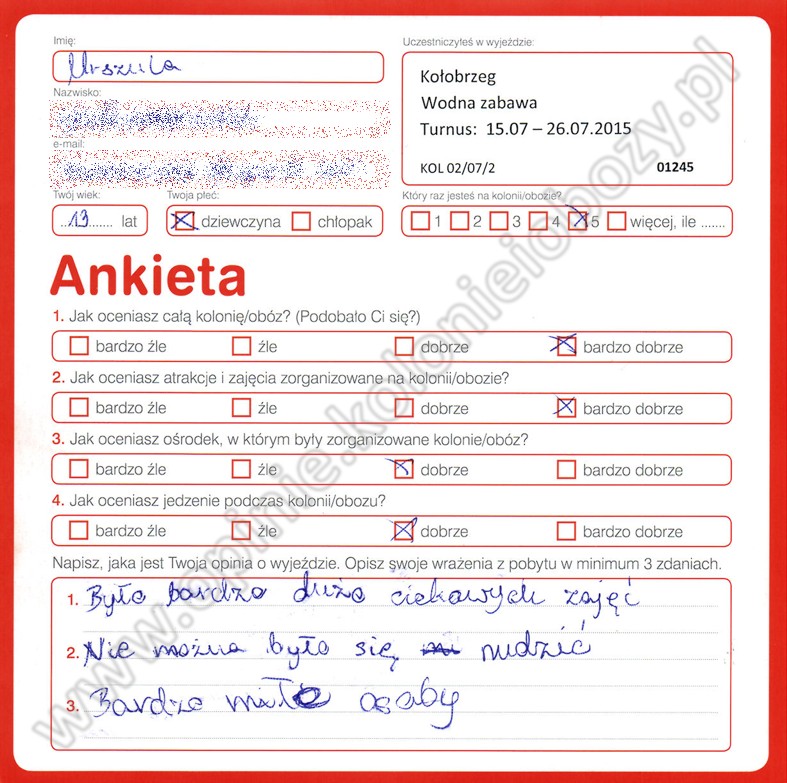 Imię:
Urszula
Nazwisko:
e-mail:
Twój wiek:
..13....... lat
Twoja płeć:
dziewczyna chłopak
Uczestniczyłeś w wyjeździe:
Kołobrzeg
Wodna zabawa
Turnus: 15.07 – 26.07.2015
KOL 02/07/2 01245
Który raz jesteś na kolonii/obozie?
1 2 3 4 5 więcej, ile .......
Ankieta
1. Jak oceniasz całą kolonię/obóz? (Podobało Ci się?)
bardzo źle źle dobrze bardzo dobrze
2. Jak oceniasz atrakcje i zajęcia zorganizowane na kolonii/obozie?
bardzo źle źle dobrze bardzo dobrze
3. Jak oceniasz ośrodek, w którym były zorganizowane kolonie/obóz?
bardzo źle źle dobrze bardzo dobrze
4. Jak oceniasz jedzenie podczas kolonii/obozu?
bardzo źle źle dobrze bardzo dobrze
Napisz, jaka jest Twoja opinia o wyjeździe. Opisz swoje wrażenia z pobytu w minimum 3 zdaniach.
1. Było bardzo dużo ciekawych zajęć
2. Nie można było się nudzić
3. Bardzo miłe osoby
www.opinie.kolonieiobozy.pl